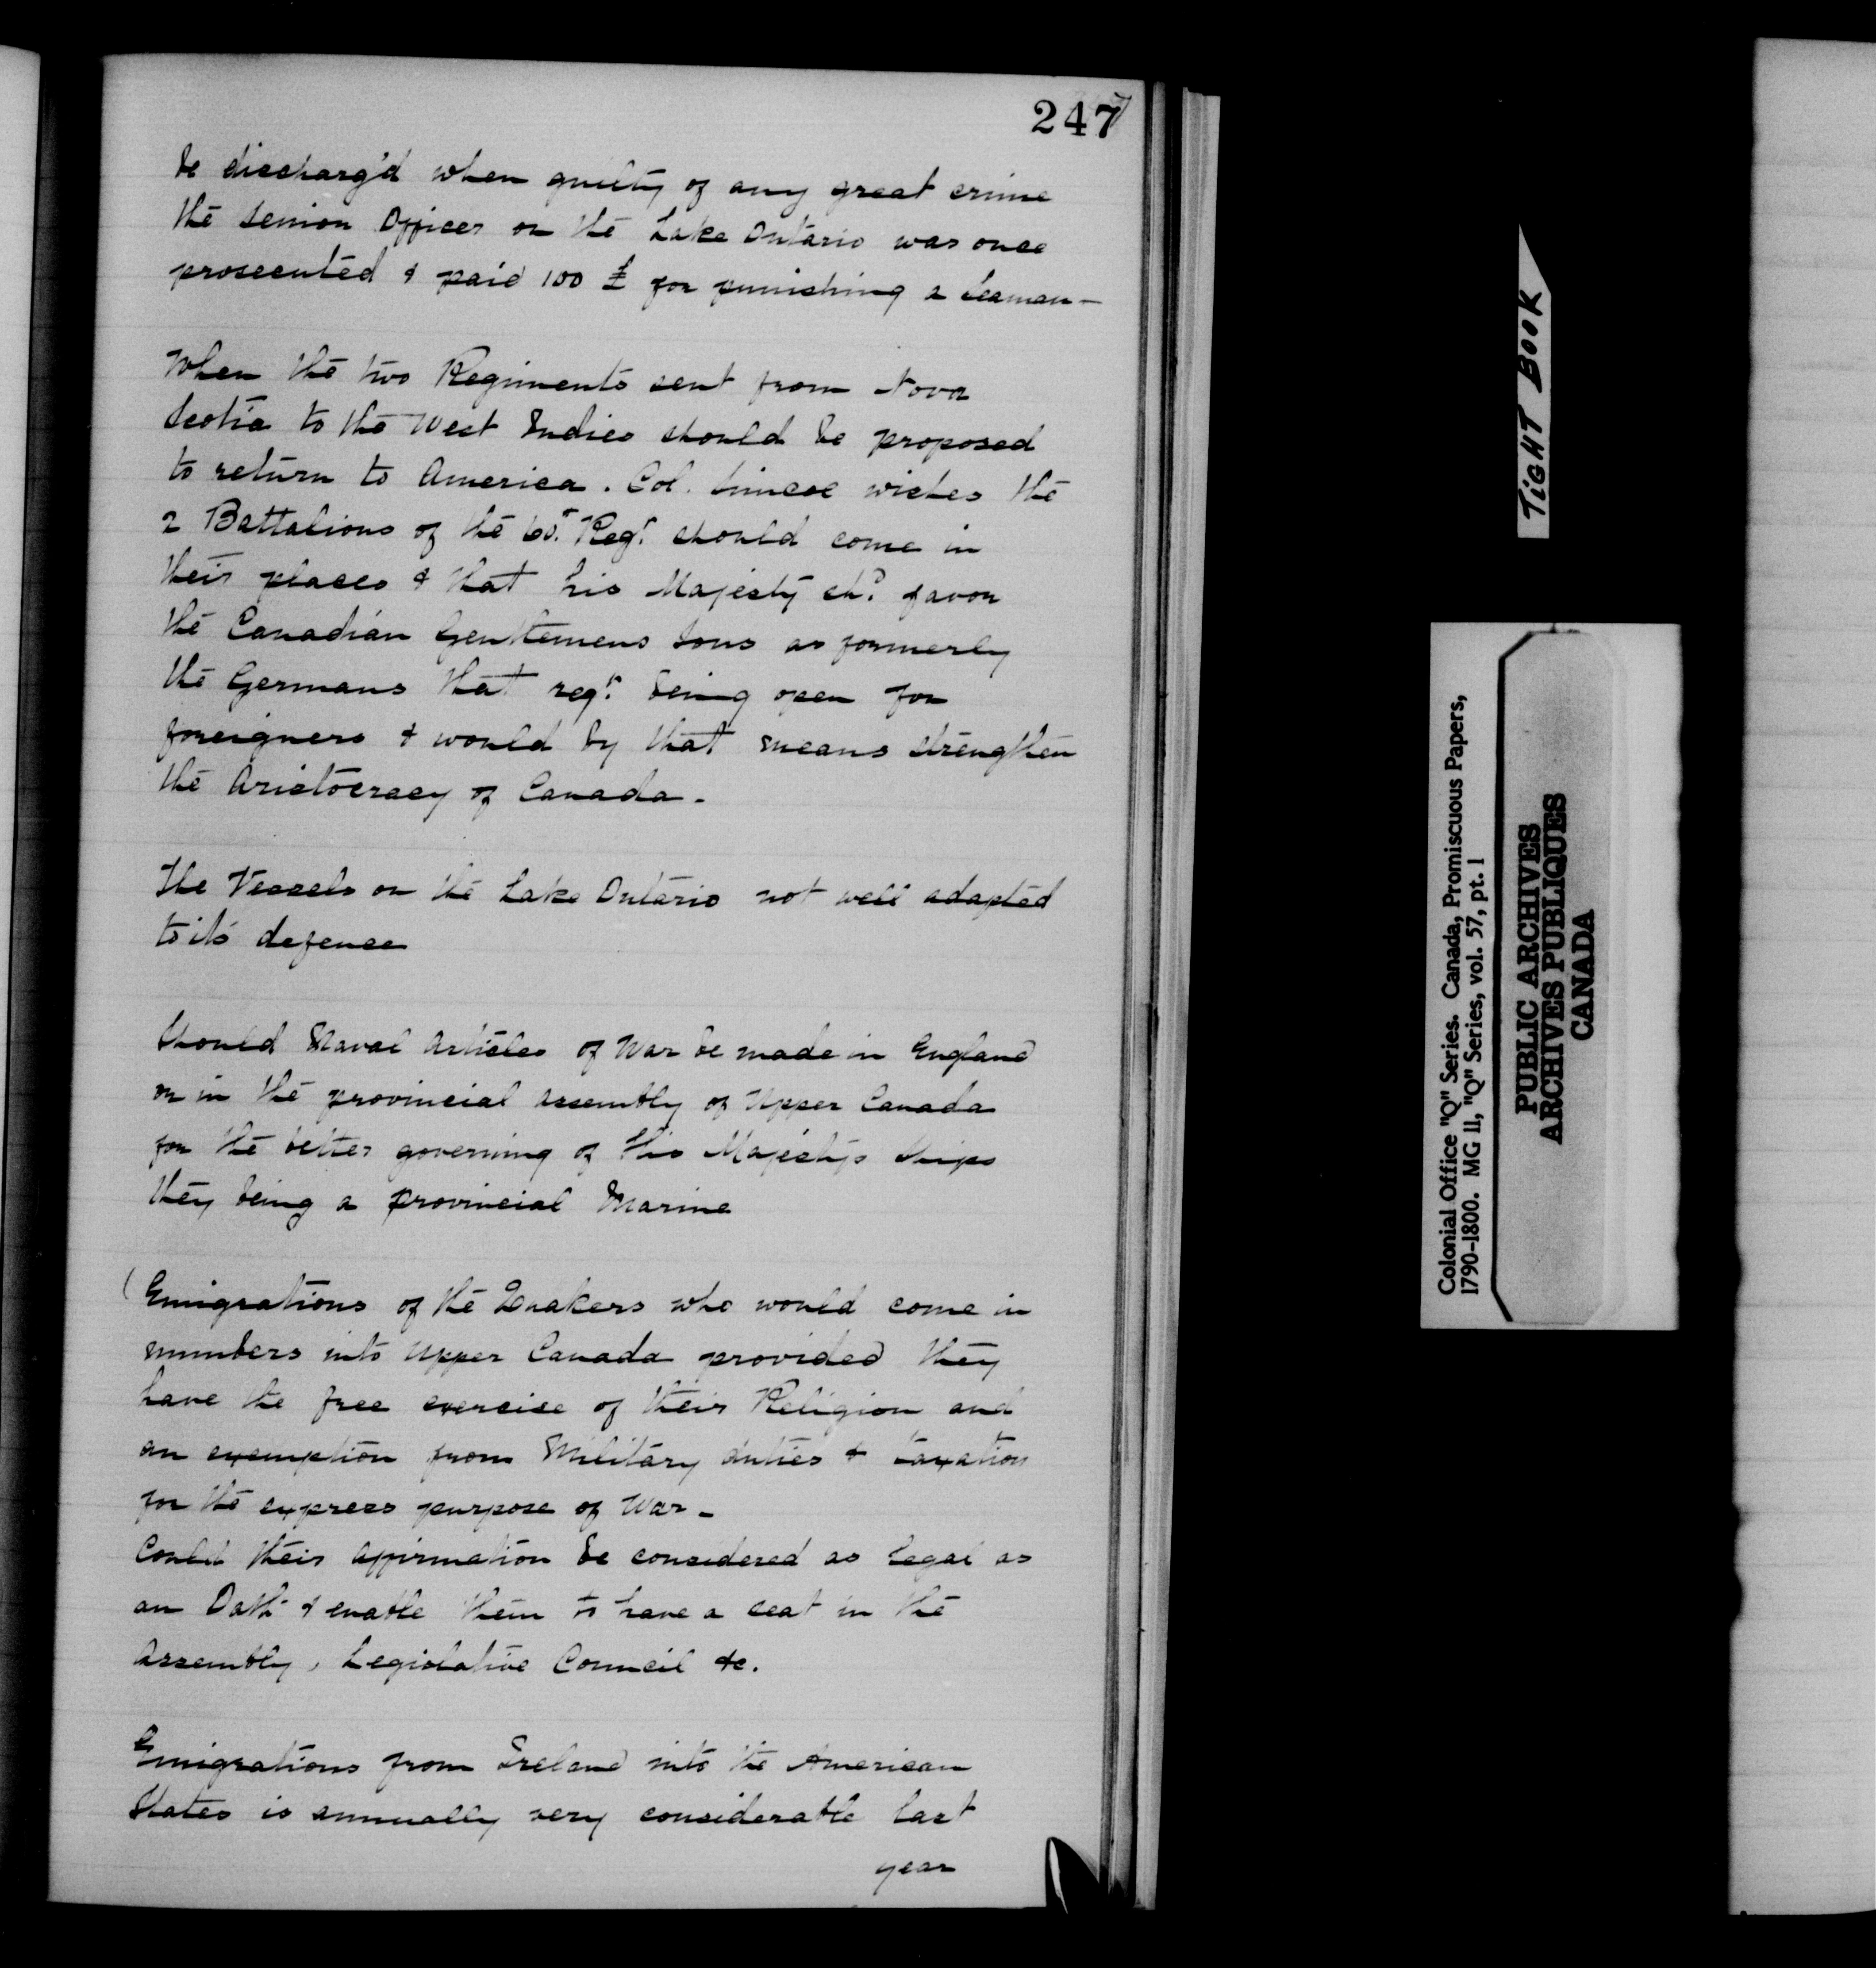 247
be discharg'd when guilty of any great crime
the Senior Officer on the Lake Ontario was once
prosecuted & paid 100 £ for punishing a Seaman —
When the two Regiments sent from Nova
Scotia to the West Indies should be proposed
to return to America. Col. Simcoe wishes the
2 Battalions of the 60th Regt should come in
their places & that his Majesty shd favor
the Canadian Gentlemens Sons as formerly
the Germans that regt being open for
foreigners & would by that means strengthen
the Aristocracy of Canada.
The Vessels on the Lake Ontario not well adapted
to its' defence
Should Naval Articles of War be made in England
or in the provincial Assembly of Upper Canada
for the better governing of His Majestys Ships
they being a provincial Marine
(Emigrations of the Quakers who would come in
numbers into Upper Canada provided they
have the free exercise of their Religion and
an exemption from Military duties & taxation
for the express purpose of War —
Could their affirmation be considered as legal as
an Oath & enable them to have a seat in the
Assembly, Legislative Council &c.
Emigrations from Ireland into the American
States is annually very considerable last
year
TIGHT BOOK
Colonial Office "Q" Series. Canada, Promiscuous Papers,
1790-1800. MG 11, "Q" Series, vol. 57, pt. 1
PUBLIC ARCHIVES
ARCHIVES PUBLIQUES
CANADA